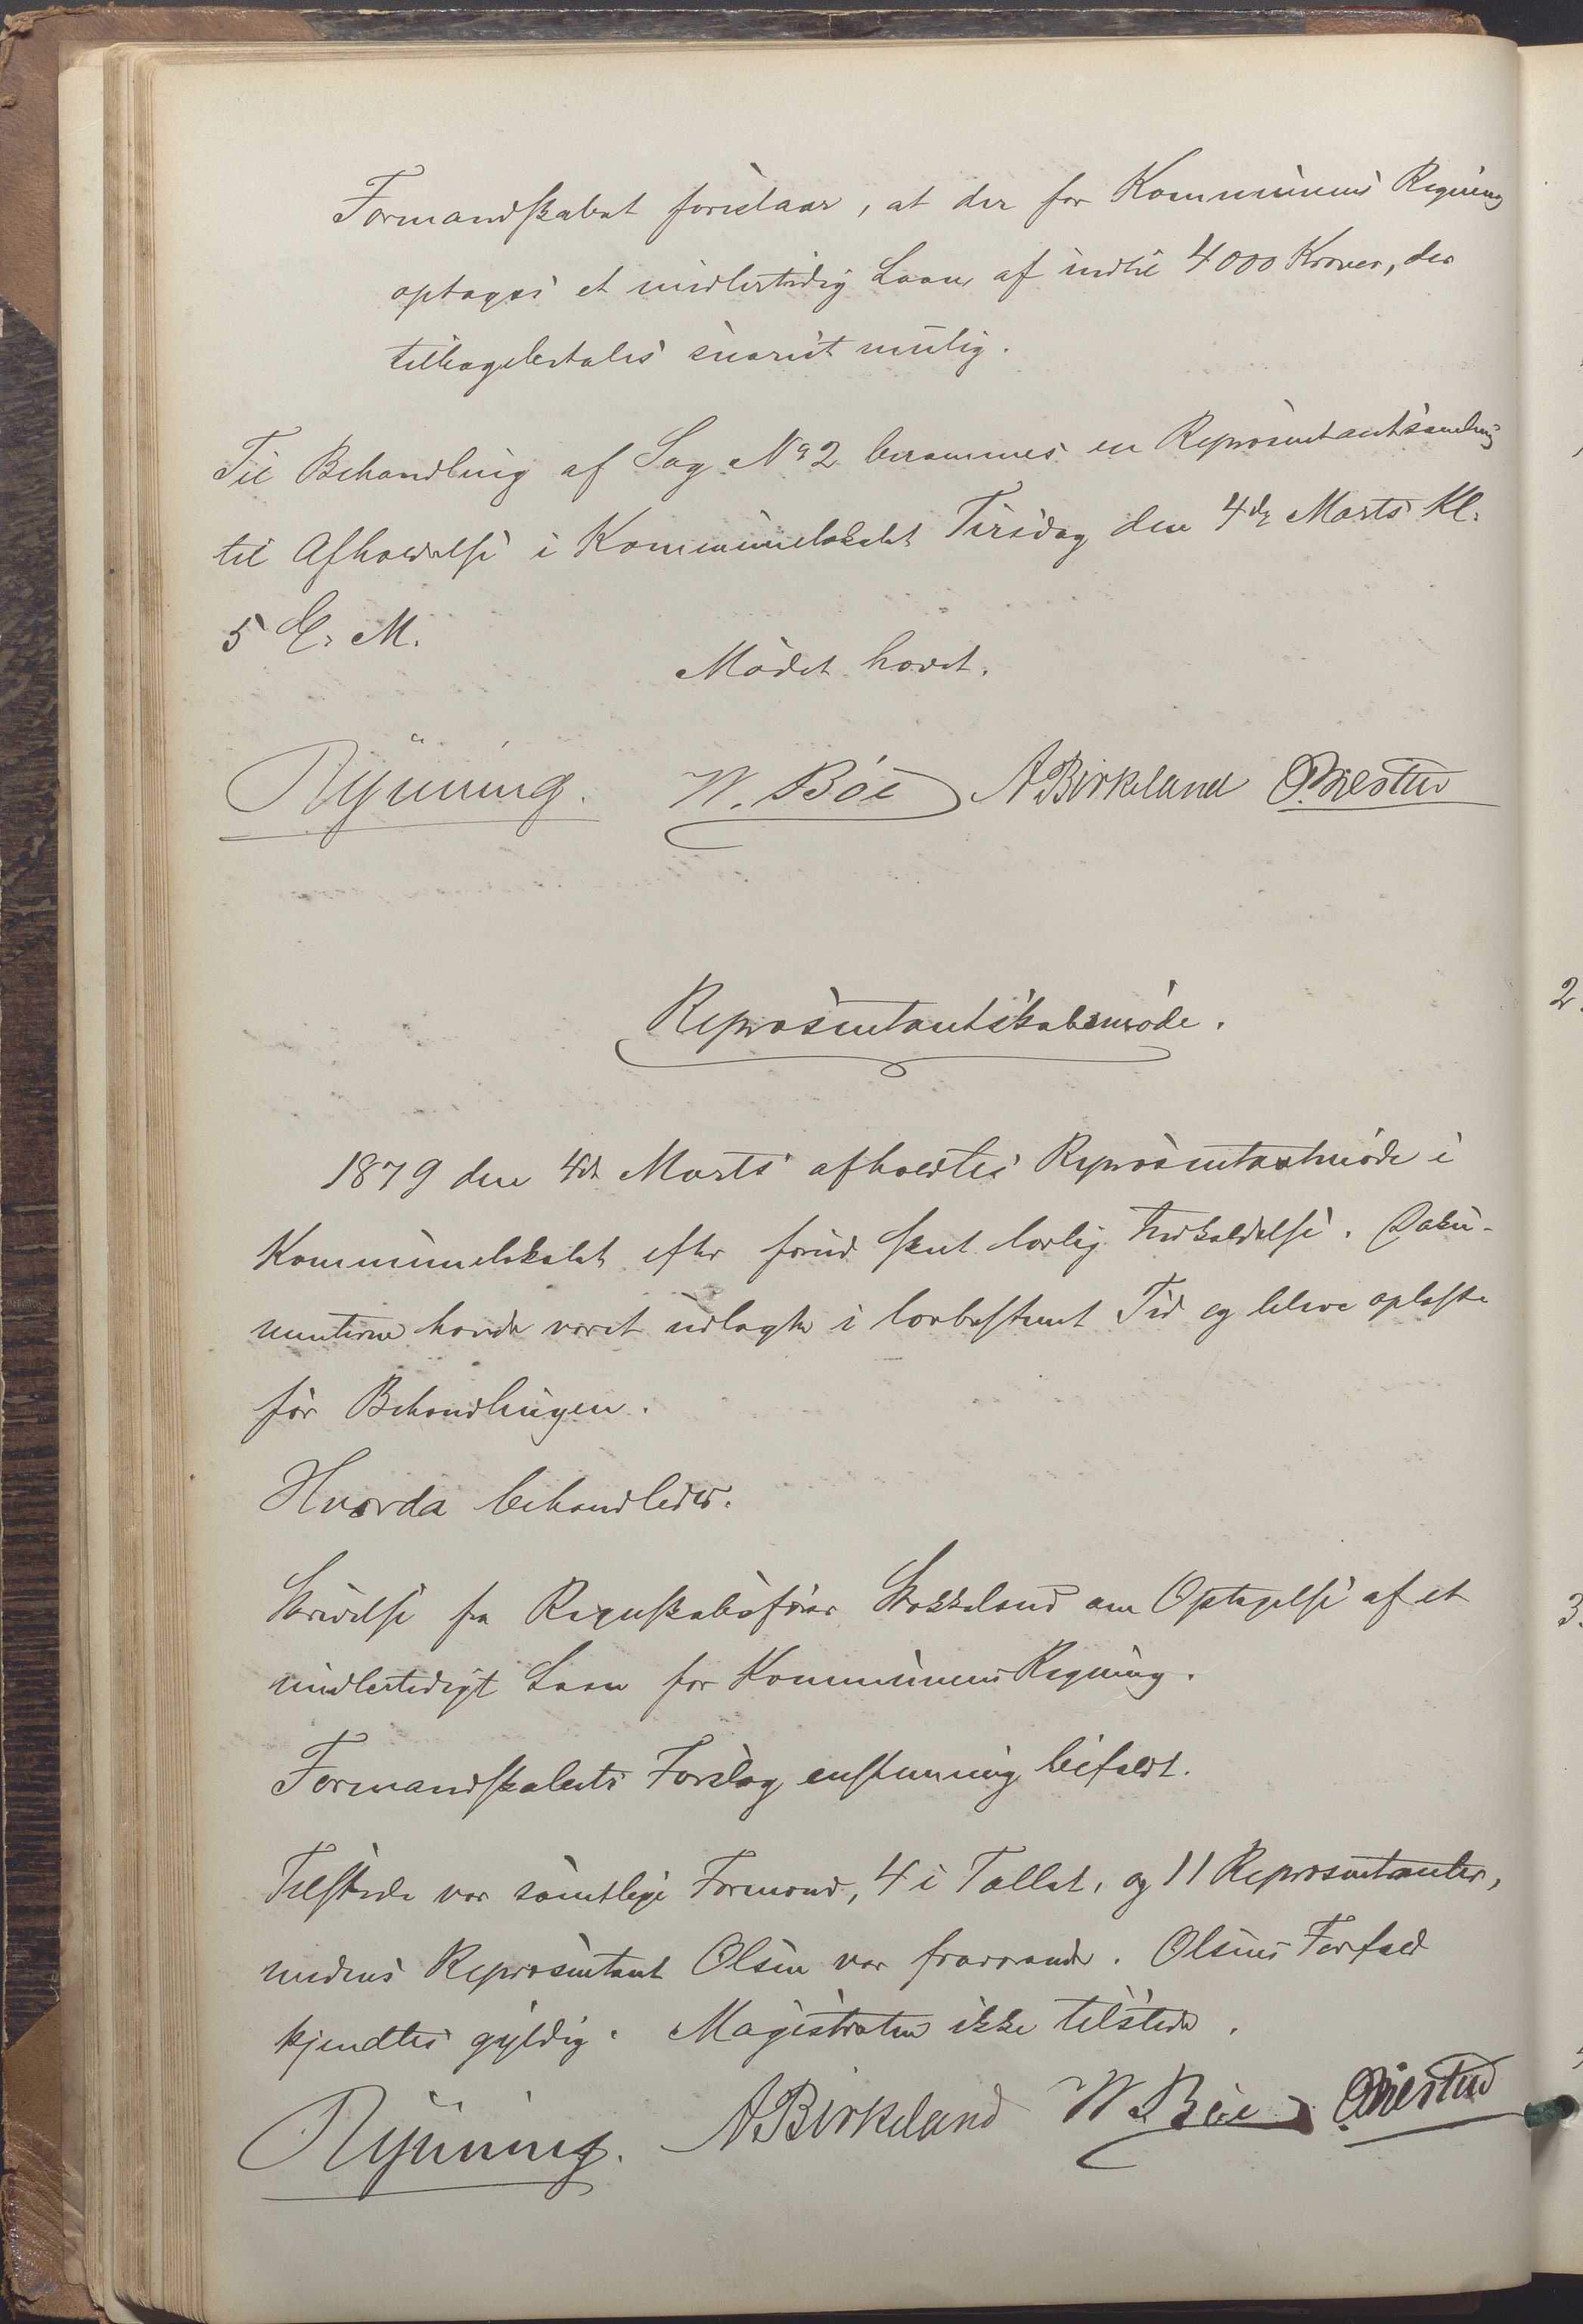 Formandskabet foreslaar, at der for Kommunens Regning
optages et midlertidig Laan af indtil 4000 Kroner, der
tilbagebetales snarest mulig.
Til Behandling af Sag No 2 berammes en Repræsentantsamling
til Afholdelse i Kommunelokalet Tirsdag den 4de Marts Kl.
5 E. M.
Mødet hævet.
Rynning. W. Bøe A Birkeland
Repræsentantskabsmøde.
1879 den 4de Marts afholdtes Repræsentantmøde i
Kommunelokalet efter forud skeet lovlig Indkaldelse. Doku-
menterne havde været udlagte i lovbestemt Tid og bleve oplæste
før Behandlingen.
Hvorda behandledes.
Skrivelse fra Regnskabsfører Stokkeland om Optagelse af et
midlertidigt Laan for Kommunens Regning.
Formandskabets Forslag enstemmig bifaldt.
Tilstede var samtlige Formænd, 4 i Tallet, og 11 Repræsentanter,
medens Repræsentant Olsen var fraværende. Olsens Forfald
kjendtes gyldig. Magistraten ikke tilstede.
Rynning. A Birkeland W. Bøe
2.
3.